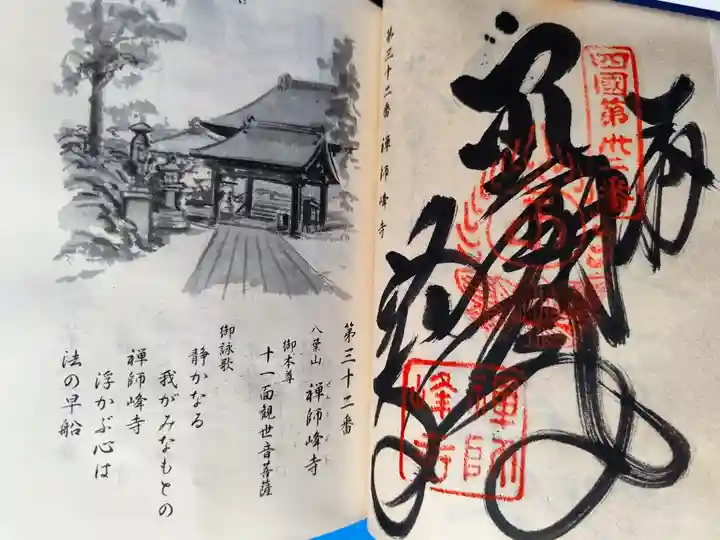 第三十二番 禅師峰寺
四國第卅二番
奉
禅師峰寺
第三十二番
八葉山 禅師峰寺
御本尊
十一面観世音菩薩
御詠歌
静かなる
我がみなもとの
禅師峰寺
浮かぶ心は
法の早船